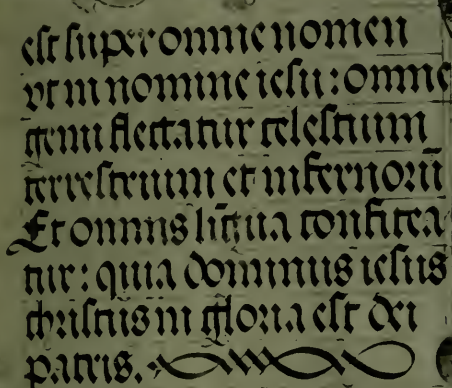 est super omne nomen
vt in nomine iesu : omne
genu flectatur celestium
terrestrium et infernorū
Et omnis lingua confitea
tur : quia dominus iesus
christus in gloria est dei
patris.